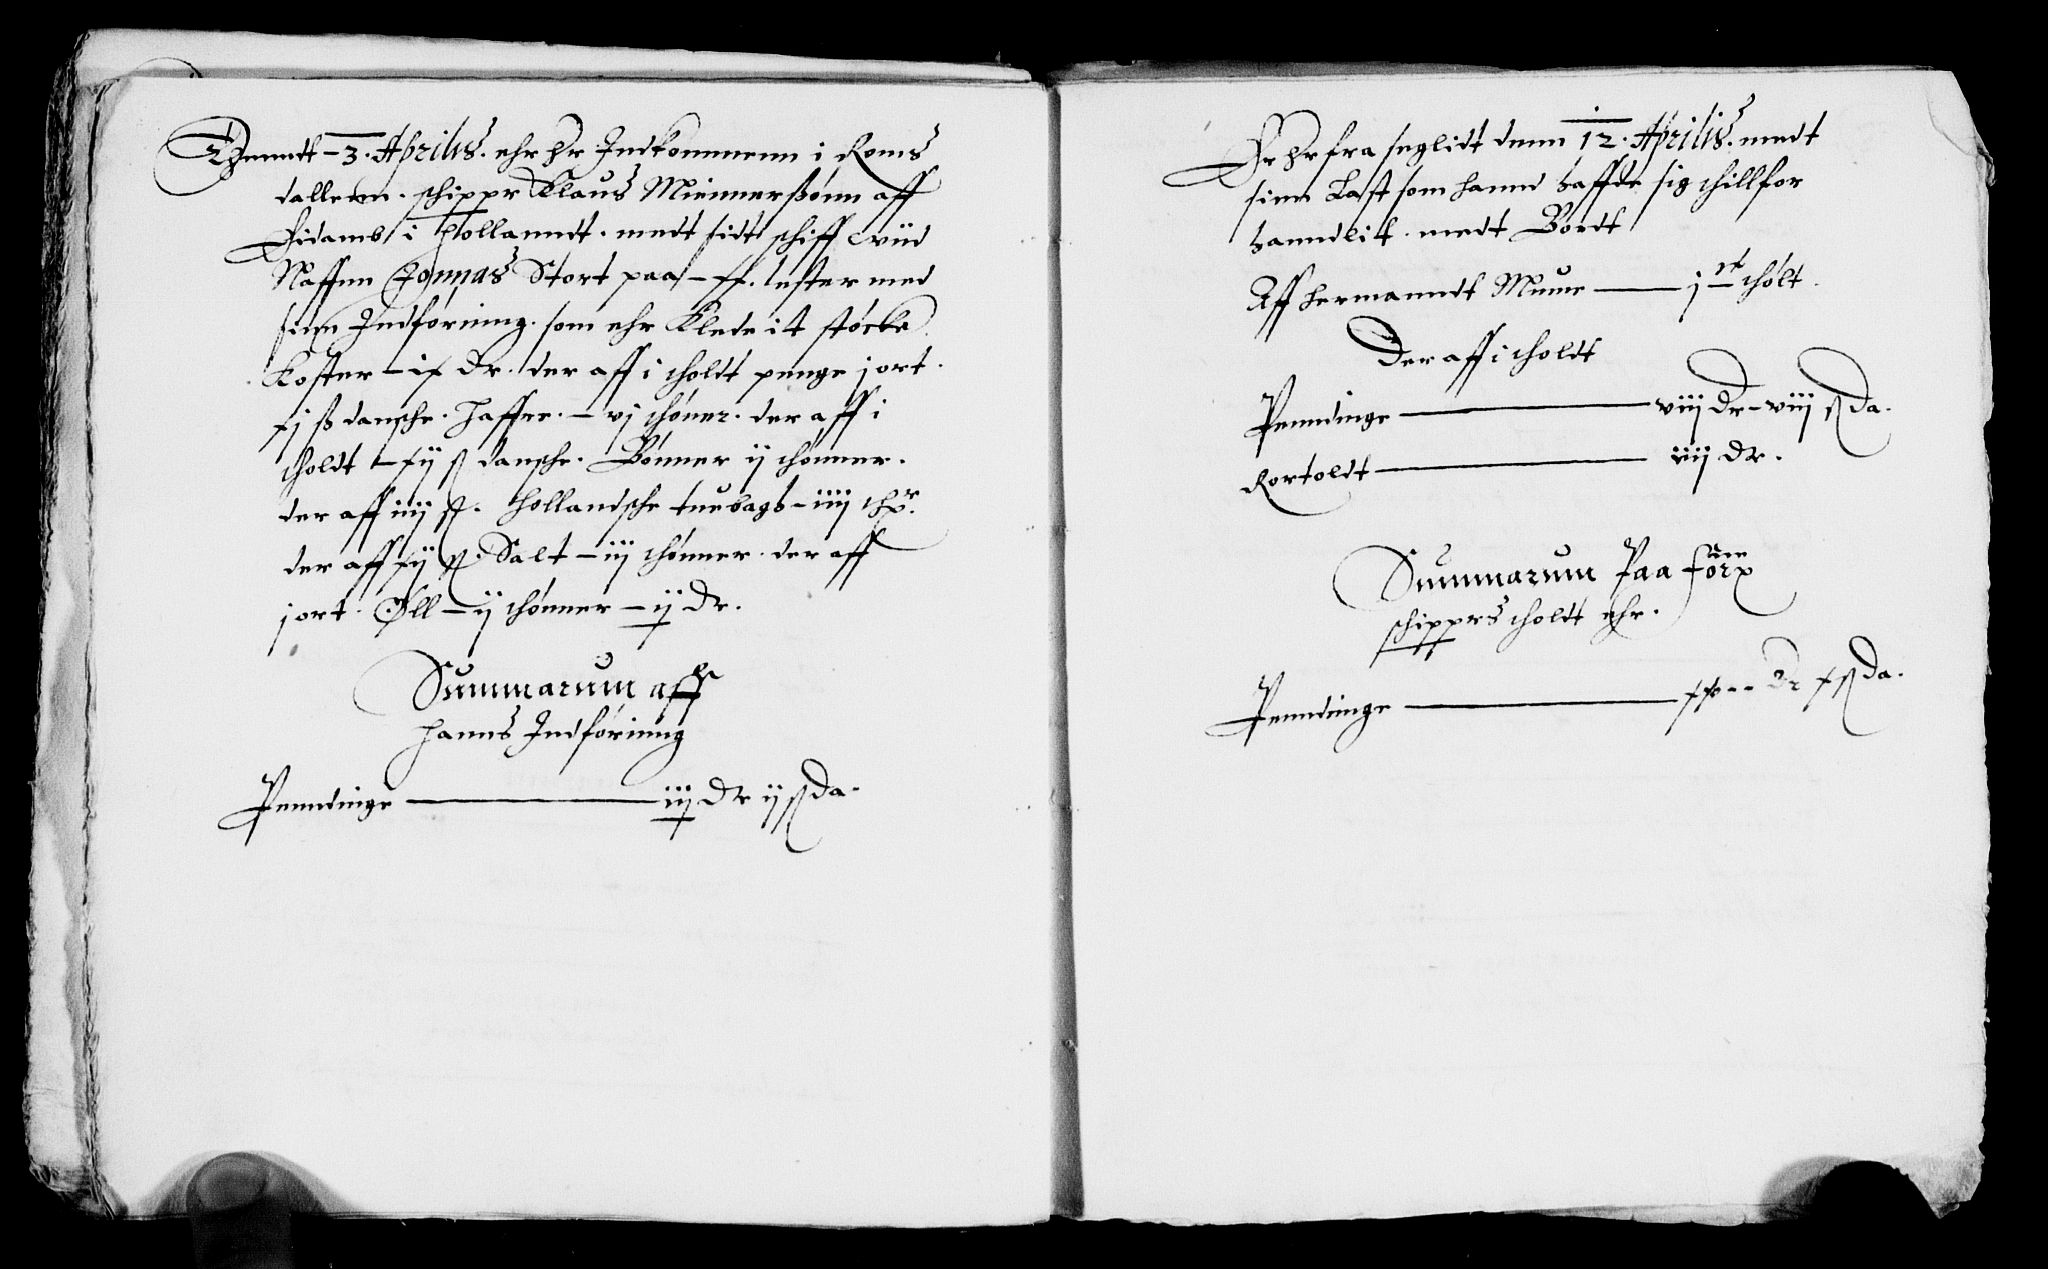 Thenndt - 3. Aprilis. ehr hr Indkommenn i Roms
dallenn. schippr Klaus Miennerßönn aff
Eidamb i Hollanndt. medt sidt schiff wiid
Naffnn Jonnas Stort paa - xx. lester med
sinn Indförning. som ehr Klede it støcke
Koster - ix Dr. der aff i tholdt penge j ort.
xj ß dansche. Haffre. - vj thøner. der aff i
tholdt - xij ß dansche. Bønner ij thønner.
der aff iiij ß. Hollandsche tuebags - iiij thr.
der aff xij ß. Salt - iij thønner. der aff
j ort. Øll - ij thønner - ij Dr.
Summarum aff
hanns Indføring
Penndinge - iij Dr ij ß da.
Er hr fra seglidt denn 12. Aprilis. medt
sinn Last som hannd haffde sig thillfor
hanndlit. medt Bordt
Aff Hermanndt Muur - j st thølt.
Der aff i tholdt
Penndinge - viij Dr - viij ß da.
Rortoldt - iiij Dr.
Summarum Paa
schippers tholdt ehr.
Penndinge - Dr x ß da.